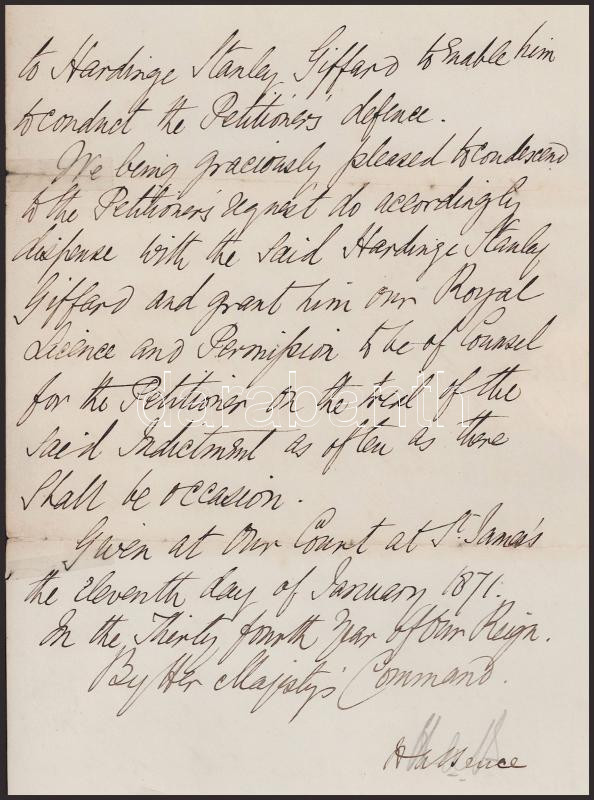 to Hardinge Stanley Giffard to Enable him
to conduct the Petitioner's defence.
We being graciously pleased to condescend
to the Petitioner's request do accordingly
dispense with the said Hardinge Stanley
Giffard and grant him our Royal
Licence and Permission to be of Counsel
for the Petitioner on the trial of the
said Indictment as often as there
Shall be occasion.
Given at Our Court at St. James's
the Eleventh day of January 1871.
In the Thirty fourth Year of Our Reign.
By Her Majesty's Command.
darabanth